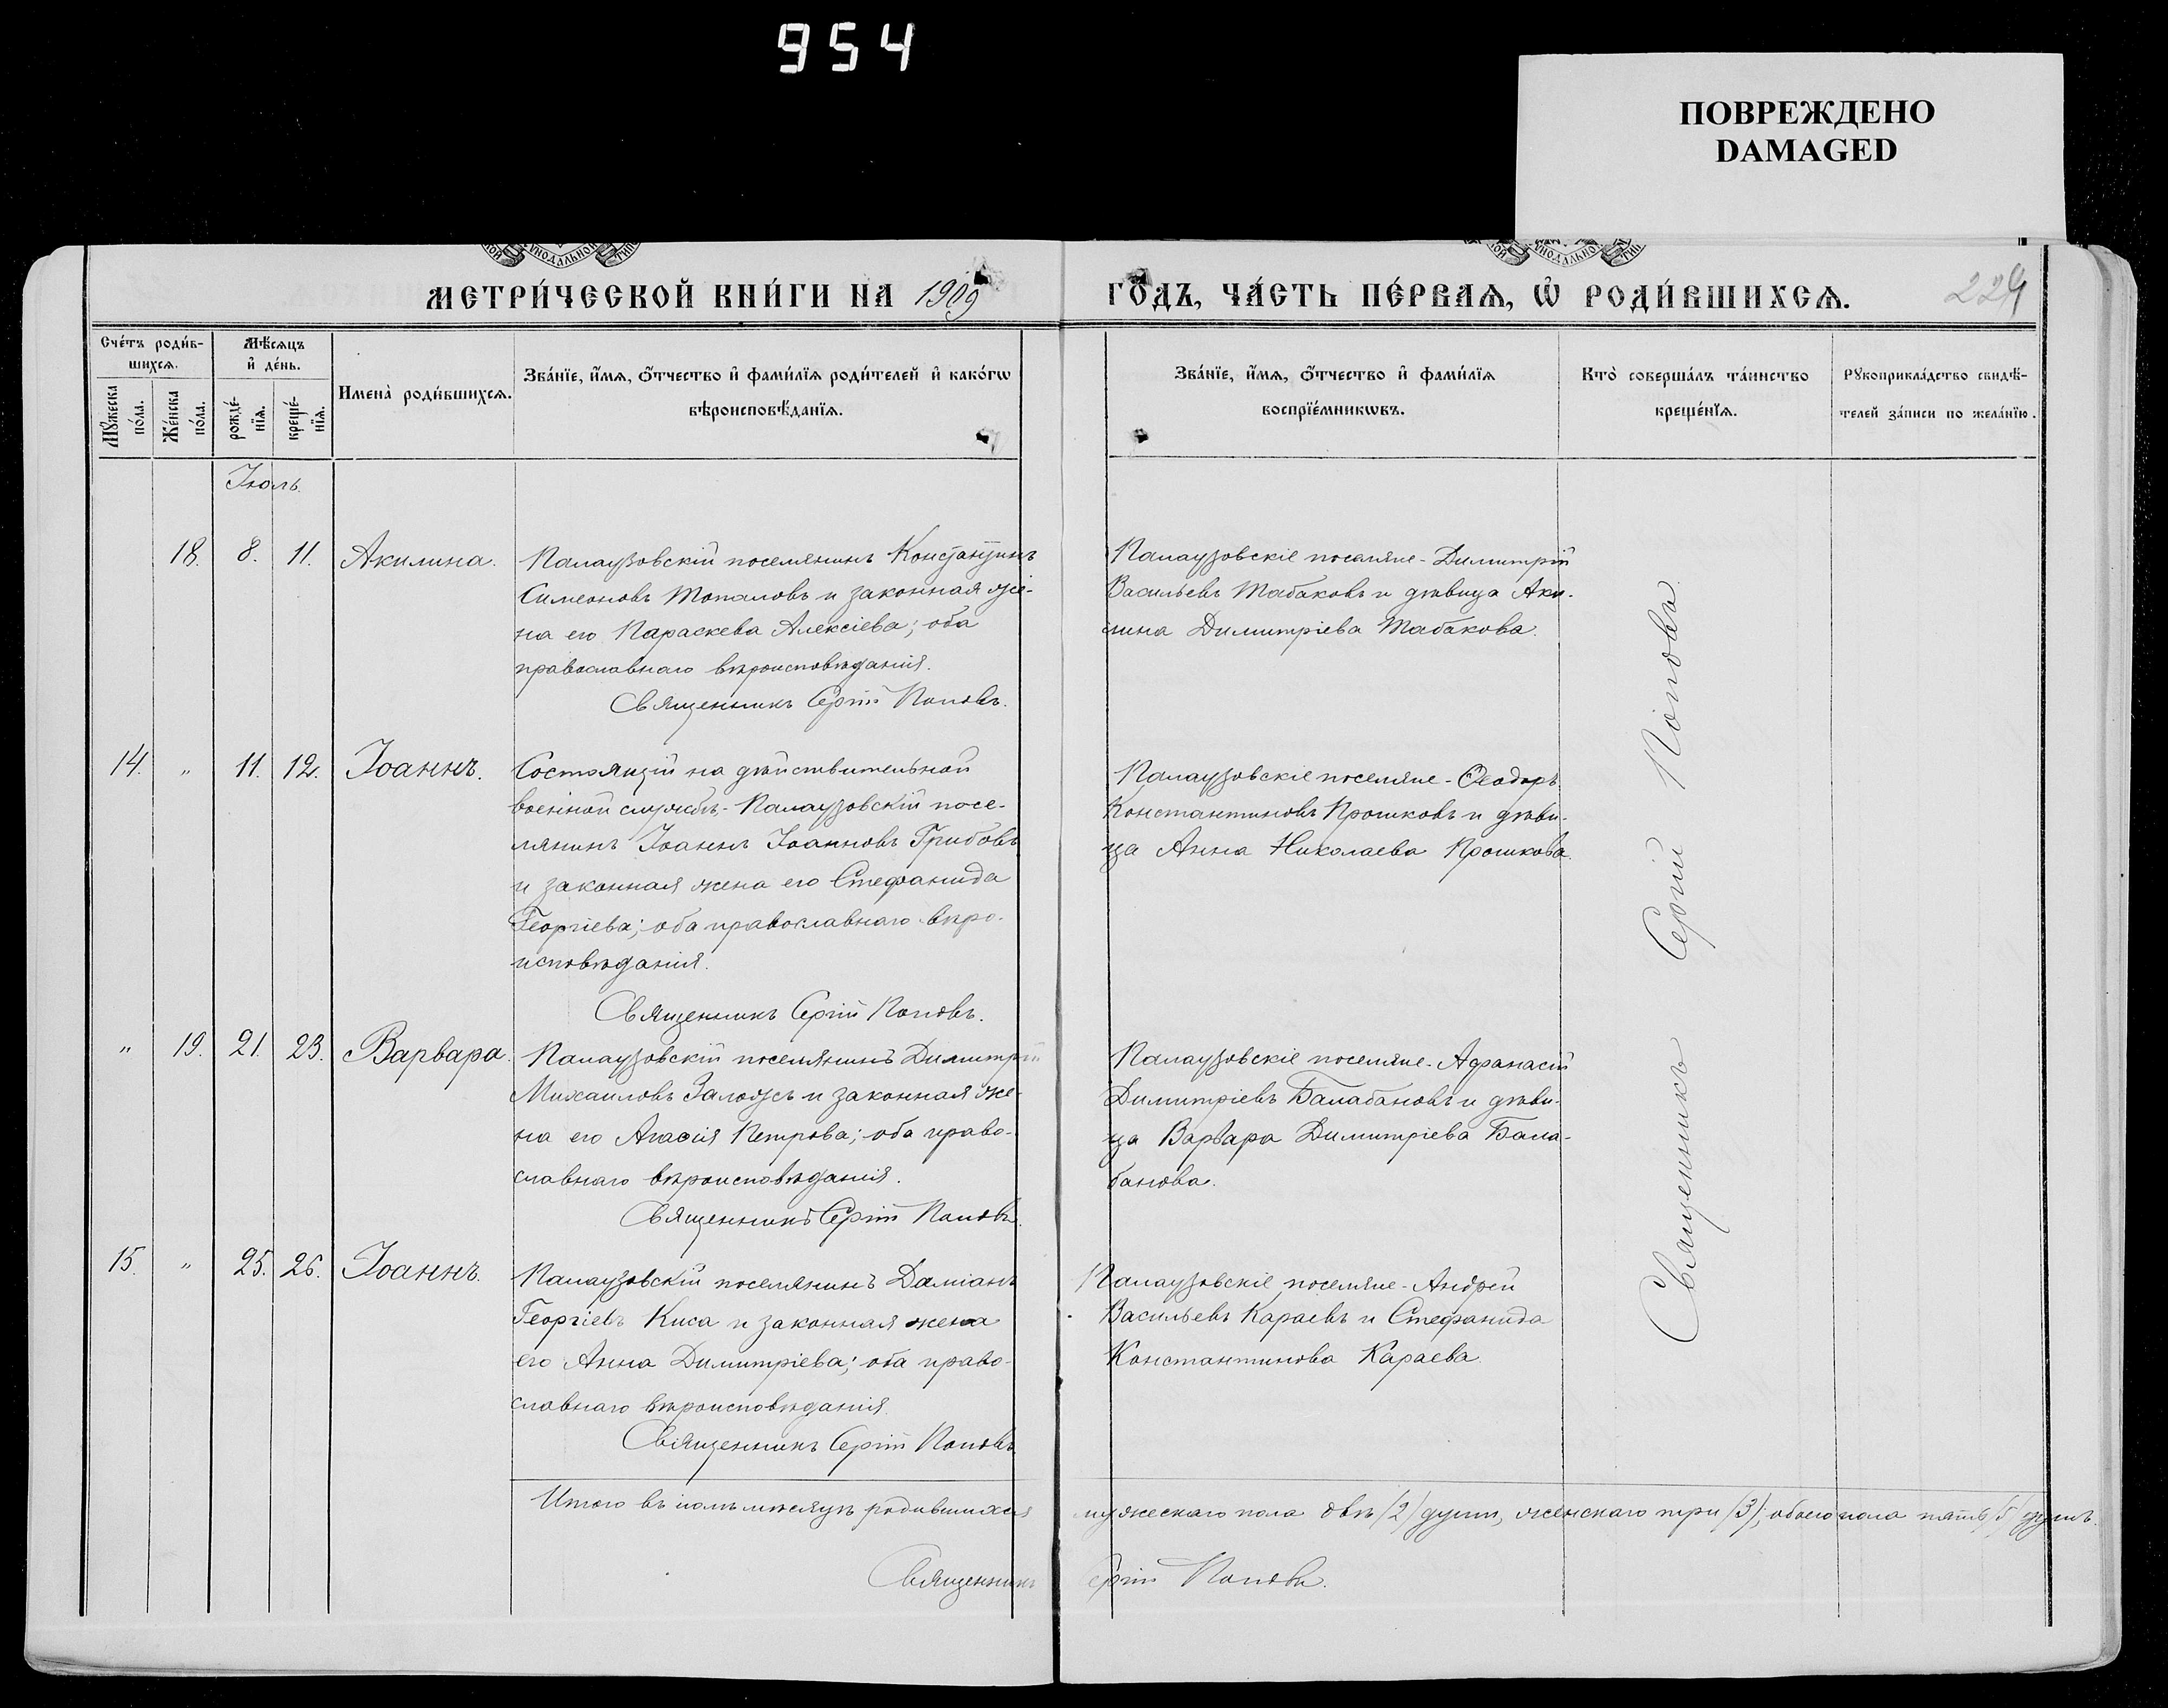 954
ПОВРЕЖДЕНО
DAMAGED
МЕТРИ́ЧЕСКОЙ КНИ́ГИ НА 1909
ГО́ДЪ, ЧА́СТЬ ПЕ́РВАѦ, Ѡ РОДИ́ВШИХСѦ.
229
Сче́тъ роди́в-
шихсѧ.
Мꙋ́жеска
по́ла.
Же́нска
по́ла.
Мѣ́сѧцъ
и҆ де́нь.
рожде́-
нїѧ.
креще́-
нїѧ.
Имена̀ роди́вшихсѧ.
Зва́нїе, и҆́мѧ, ѻ҆́тчество и҆ фами́лїѧ роди́телей и҆ како́гѡ
вѣроисповѣ́данїѧ.
Зва́нїе, и҆́мѧ, ѻ҆́тчество и҆ фами́лїѧ
воспрїе́мникѡвъ.
Кто̀ соверша́лъ та́инство
креще́нїѧ.
Рꙋкоприкла́дство свидѣ́-
телей за́писи по жела́нїю.
Іюль.
18. 8. 11. Акилина.
Палаузовскій поселянинъ Константинъ
Симеоновъ Топаловъ и законная же-
на его Параскева Алексіева; оба
православнаго вѣроисповѣданія.
Священникъ Сергій Поповъ.
Палаузовскіе поселяне - Димитрій
Васильевъ Табаковъ и дѣвица Аки-
лина Димитріева Табакова.
14. " 11. 12. Іоаннъ.
Состоящій на дѣйствительной
военной службѣ, - Палаузовскій посе-
лянинъ Іоаннъ Іоанновъ Грибовъ
и законная жена его Стефанида
Георгіева; оба православнаго вѣро-
исповѣданія.
Священникъ Сергій Поповъ.
Палаузовскіе поселяне - Ѳеодоръ
Константиновъ Прошковъ и дѣви-
ца Анна Николаева Прошкова.
" 19. 21. 23. Варвара.
Палаузовскій поселянинъ Димитрій
Михаиловъ и законная же-
на его Петрова; оба право-
славнаго вѣроисповѣданія.
Священникъ Сергій Поповъ.
Палаузовскіе поселяне - Афанасій
Димитріевъ Балабановъ и дѣви-
ца Варвара Димитріева Бала-
банова.
15. " 25. 26. Іоаннъ.
Палаузовскій поселянинъ Даміанъ
Георгіевъ Киса и законная жена
его Анна Димитріева; оба право-
славнаго вѣроисповѣданія
Священникъ Сергій Поповъ
Палаузовскіе поселяне - Андрей
Васильевъ Караевъ и Стефанида
Константинова Караева.
Священникъ Сергій Поповъ
Итого въ іюлѣ мѣсяцѣ родившихся мужескаго пола двѣ /2/ души, женскаго три /3/, обоего пола пять /5/ душъ.
Священникъ Сергій Поповъ.